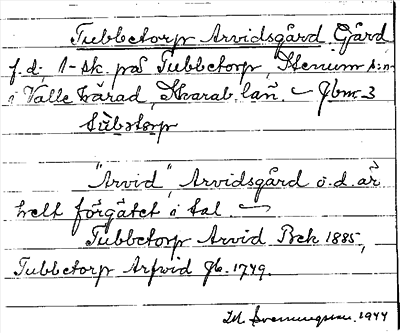 Tubbetorp Arvidsgård Gård
f.d. 1-sk. på Tubbetorp, Stenum s:n
i Valle härad, Skarab. län. — Gbm. 3
tùbətɔrp
"Arvid", Arvidsgård o.d. är
helt förgätet i tal. —
Tubbetorp Arvid Bek 1885,
Tubbetorp Arfvid Jb. 1749.
Svenningsson. 1944